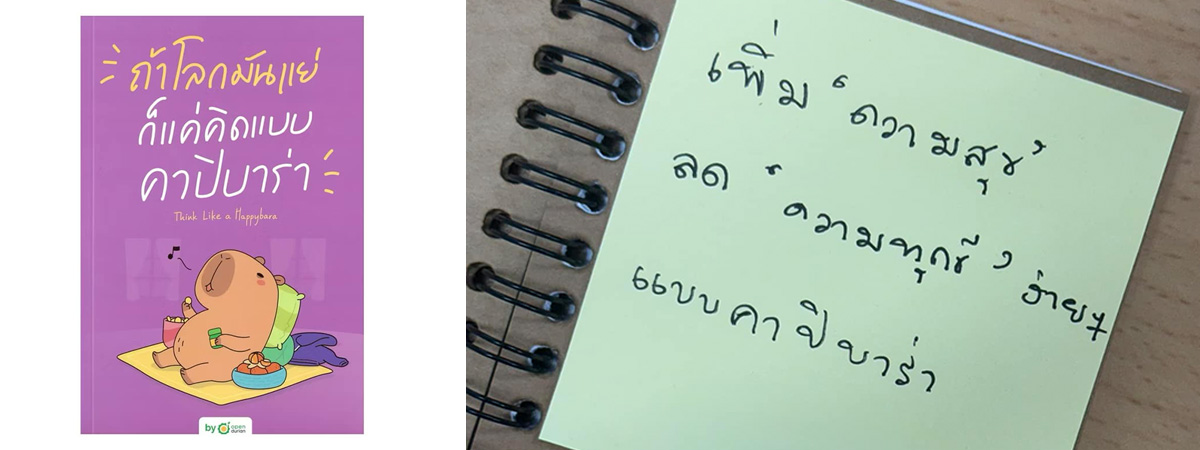 ถ้าโลกมันแย่
ก็แค่คิดแบบ
คาปิบาร่า
Think Like a Happybara
by open durian
เพิ่ม "ความสุข"
ลด "ความทุกข์" ง่ายๆ
แบบคาปิบาร่า